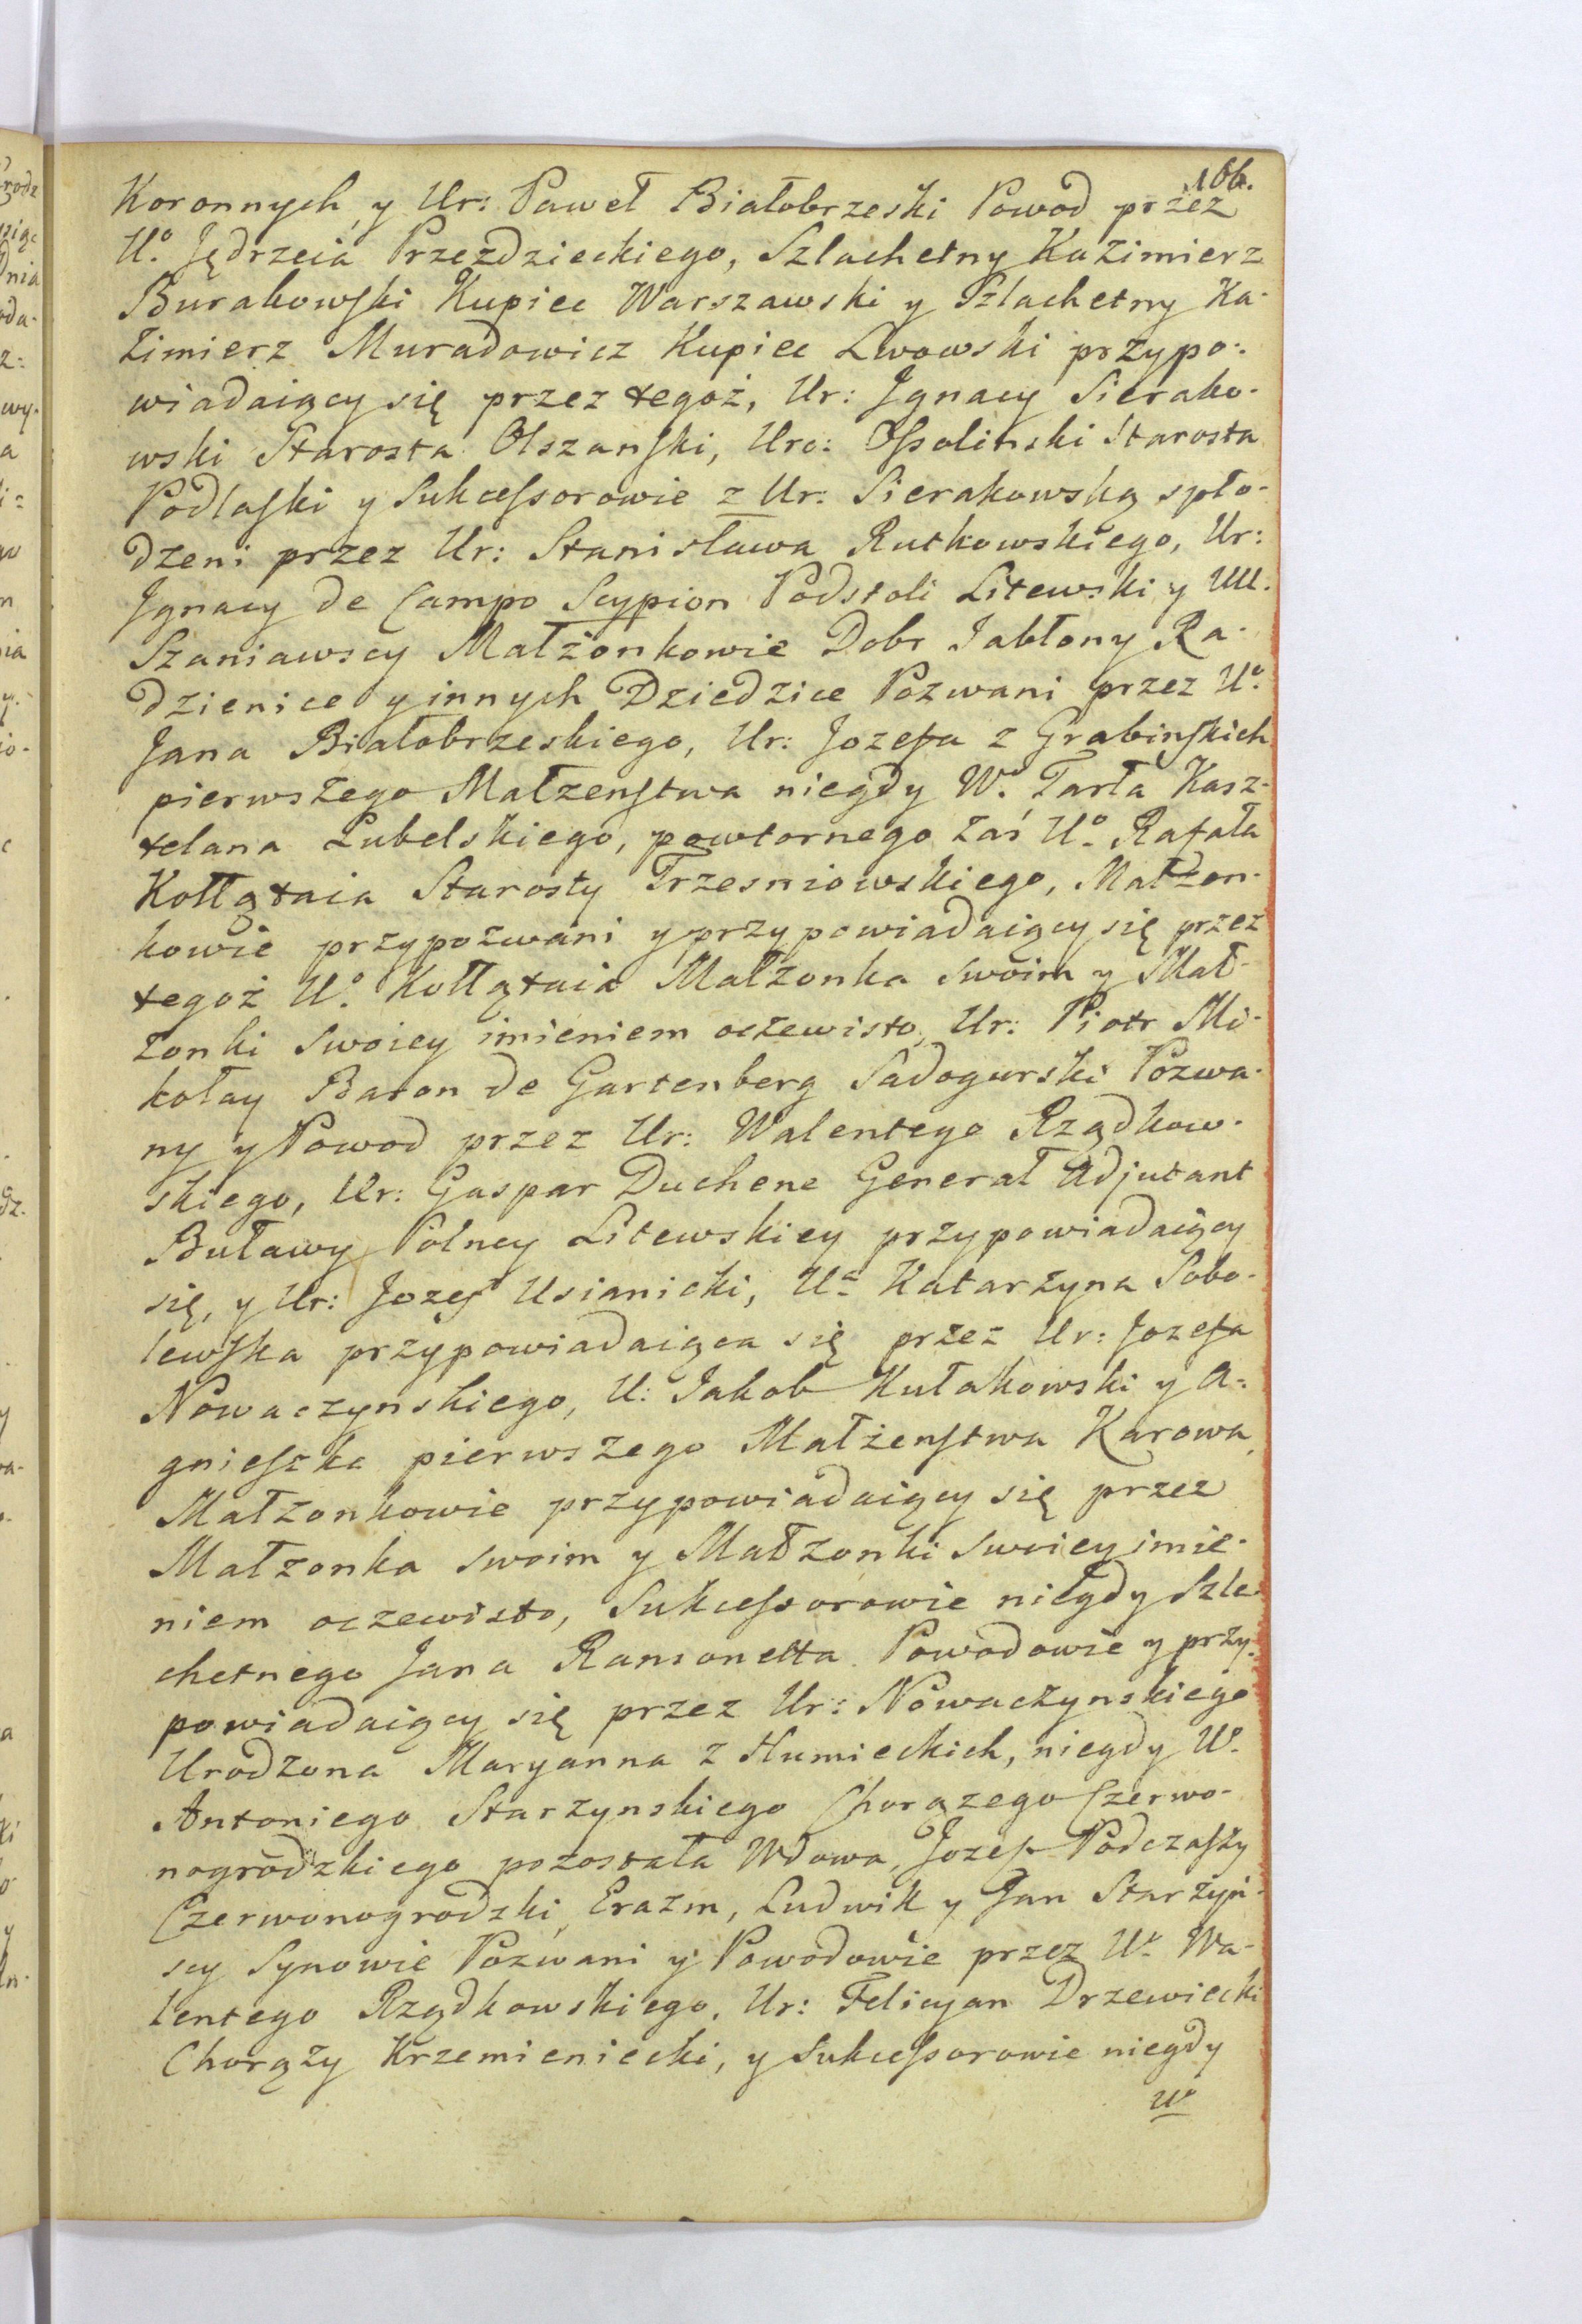 166.
Koronnych y Ur: Paweł Białobrzeski Powod przez
Uº Jędrzeia Przezdzieckiego, Szlachetny Kazimierz
Burakowski Kupiec Warszawski y Szlachetny Ka-
zimierz Muradowicz Kupiec Lwowski przypo-
wiadaiący się przez tegoż, Ur: Jgnacy Sierako-
wski Starosta Olszanski, Uro: Ossolinski Starosta
Podlaski y Sukcessorowie z Ur: Sierakowską spło-
dzeni przez Ur: Stanisława Rutkowskiego, Ur:
Jgnacy de Campo Scypion Podstoli Litewski y UU.
Szaniawscy Małżonkowie Dobr Jabłony Ra-
dzienice y innych Dziedzice Pozwani przez Uº
Jana Białobrzeskiego, Ur: Jozefa z Grabinskich
pierwszego Małzenstwa niegdy Wº Tarła Kasz-
telana Lubelskiego, powtornego zaś Uº Rafała
Kołłątaia Starosty Trzesniowskiego, Małżon-
kowie przypozwani y przypowiadaiący się przez
tegoż Uº Kołłątaia Małzonka swoim y Mał-
zonki swoiey imieniem oczewisto, Ur: Piotr Mi-
kołay Baron de Gartenberg Sadogurski Pozwa-
ny y Powod przez Ur: Walentego Rządkow-
skiego, Ur: Gaspar Duchene Generał Adjutant
Buławy Polney Litewskiey przypowiadaiący
się, y Ur: Jozef Usianicki, Uª Katarzyna Sobo-
lewska przypowiadaiąca się przez Ur: Jozefa
Nowaczynskiego, U: Jakob Kułakowski y A-
gnieszka pierwszego Małżenstwa Karowa
Małzonkowie przypowiadaiący się przez
Małzonka swoim y Małzonki swoiey imie-
niem oczewisto, Sukcessorowie niegdy Szla-
chetnego Jana Ransonetta Powodowie y przy-
powiadaiący się przez Ur: Nowaczynskiego
Urodzona Maryanna z Humieckich, niegdy Wº
Antoniego Starzynskiego Chorązego Czerwo-
nogrodzkiego pozostała Wdowa, Jozef Podczaszy
Czerwonogrodzki, Erazm, Ludwik y Jan Starzyń-
scy Synowie Pozwani y Powodowie przez Uº Wa-
lentego Rządkowskiego, Ur: Felicyan Drzewiecki
Chorąży Krzemieniecki, y Sukcessorowie niegdy
Wº